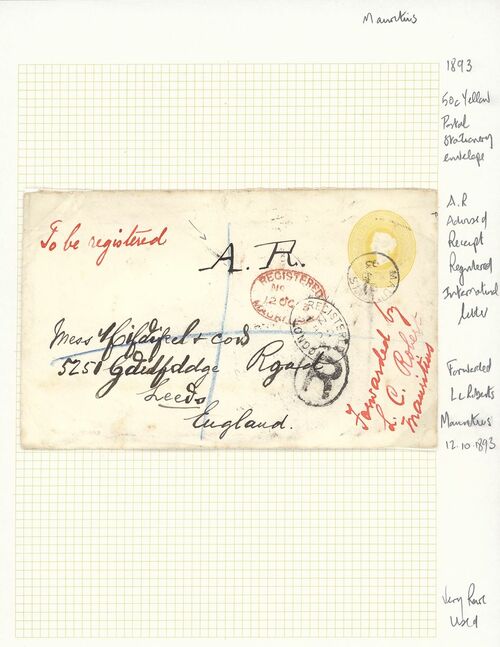 Mauritius
1893
50c Yellow
Postal
Stationery
envelope
A.R
Advised
Receipt
Registered
International
letter
Forwarded
L C Roberts
Mauritius
12.10.1893
Very Rare
Used
To be registered
A. R.
REGISTERED
No
12 OC
MAURI
REGISTER
LONDON
MAU
93
R
Mess & Co's
Leeds
England.
Forwarded by
L. C. Robe
Mauritius